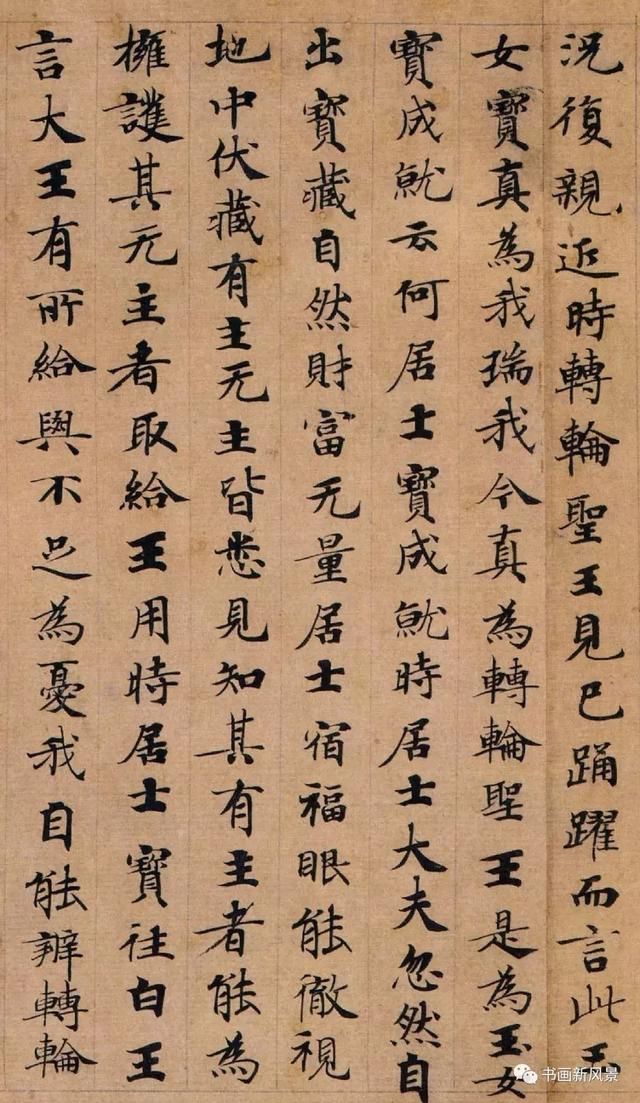 況復親近時轉輪聖王見已踊躍而言此玉
女寶真為我瑞我今真為轉輪聖王是為玉女
寶成就云何居士寶成就時居士大夫忽然自
出寶藏自然財富无量居士宿福眼能徹視
地中伏藏有主无主皆悉見知其有主者能為
擁護其无主者取給王用時居士寶往白王
言大王有所給與不足為憂我自能辦轉輪
书画新风景